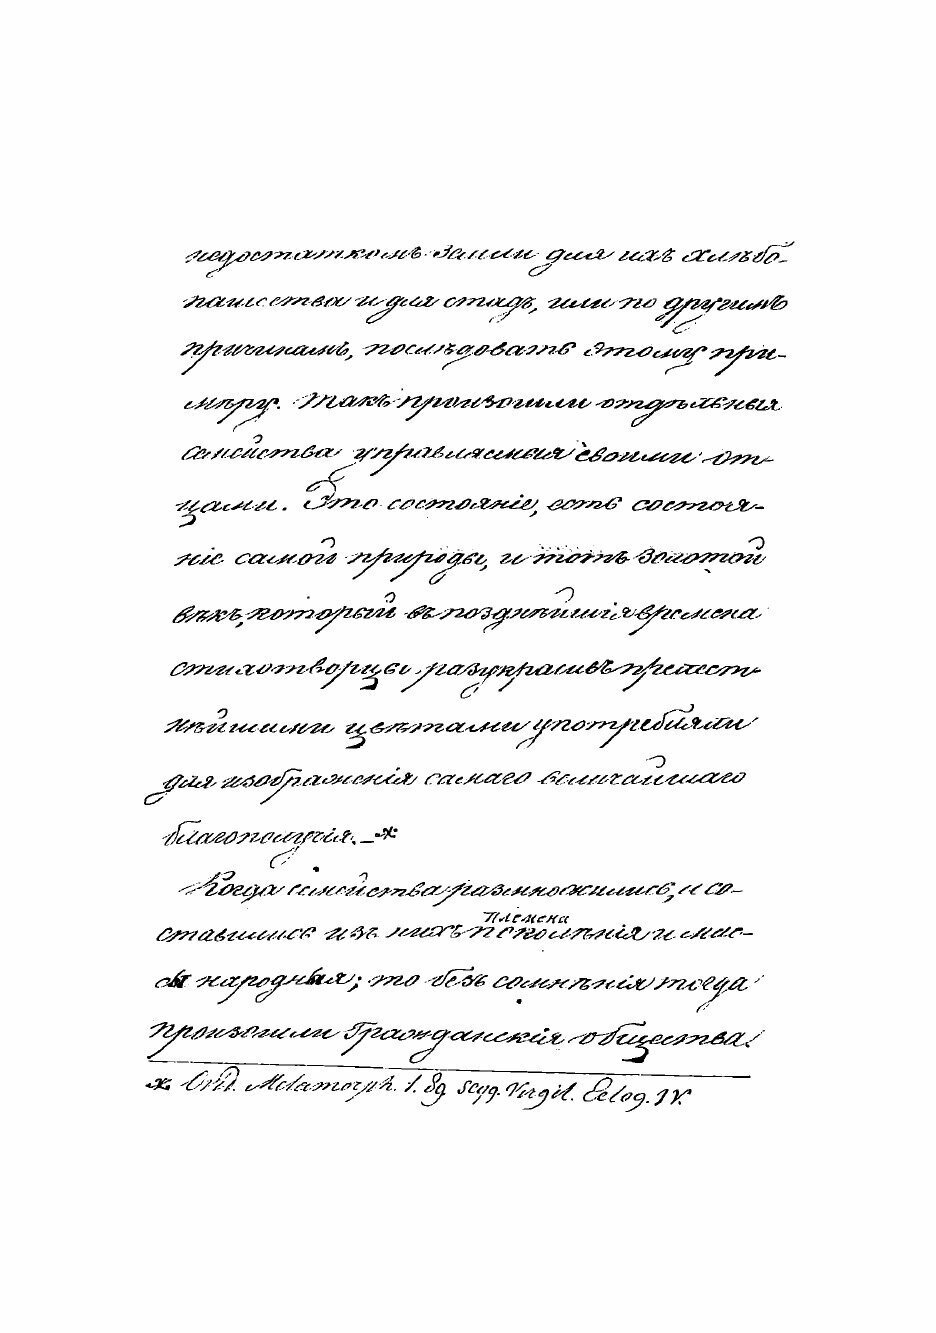 недостаткомъ земли для ихъ хлѣбо-
пашества и для стадъ, или по другимъ
причинамъ, послѣдовать этому при-
мѣру. Такъ произошли отдѣльныя
семейства управляемыя своими от-
цами. Это состояніе, есть состоя-
ніе самой природы, и тотъ золотой
вѣкъ, который въ позднѣйшія времена
стихотворцы, разукрасивъ прелест-
нѣйшими цвѣтами употребляли
для изображенія самаго величайшаго
благополучія. — *
Когда семейства размножились, и со-
племена
ставились изъ нихъ поколѣнія и мас-
сы народныя; то безъ сомнѣнія тогда
произошли Гражданскія общества.
* Ovid. Metamorph. 1. 89 seqq. Virgil. Eclog. IV.